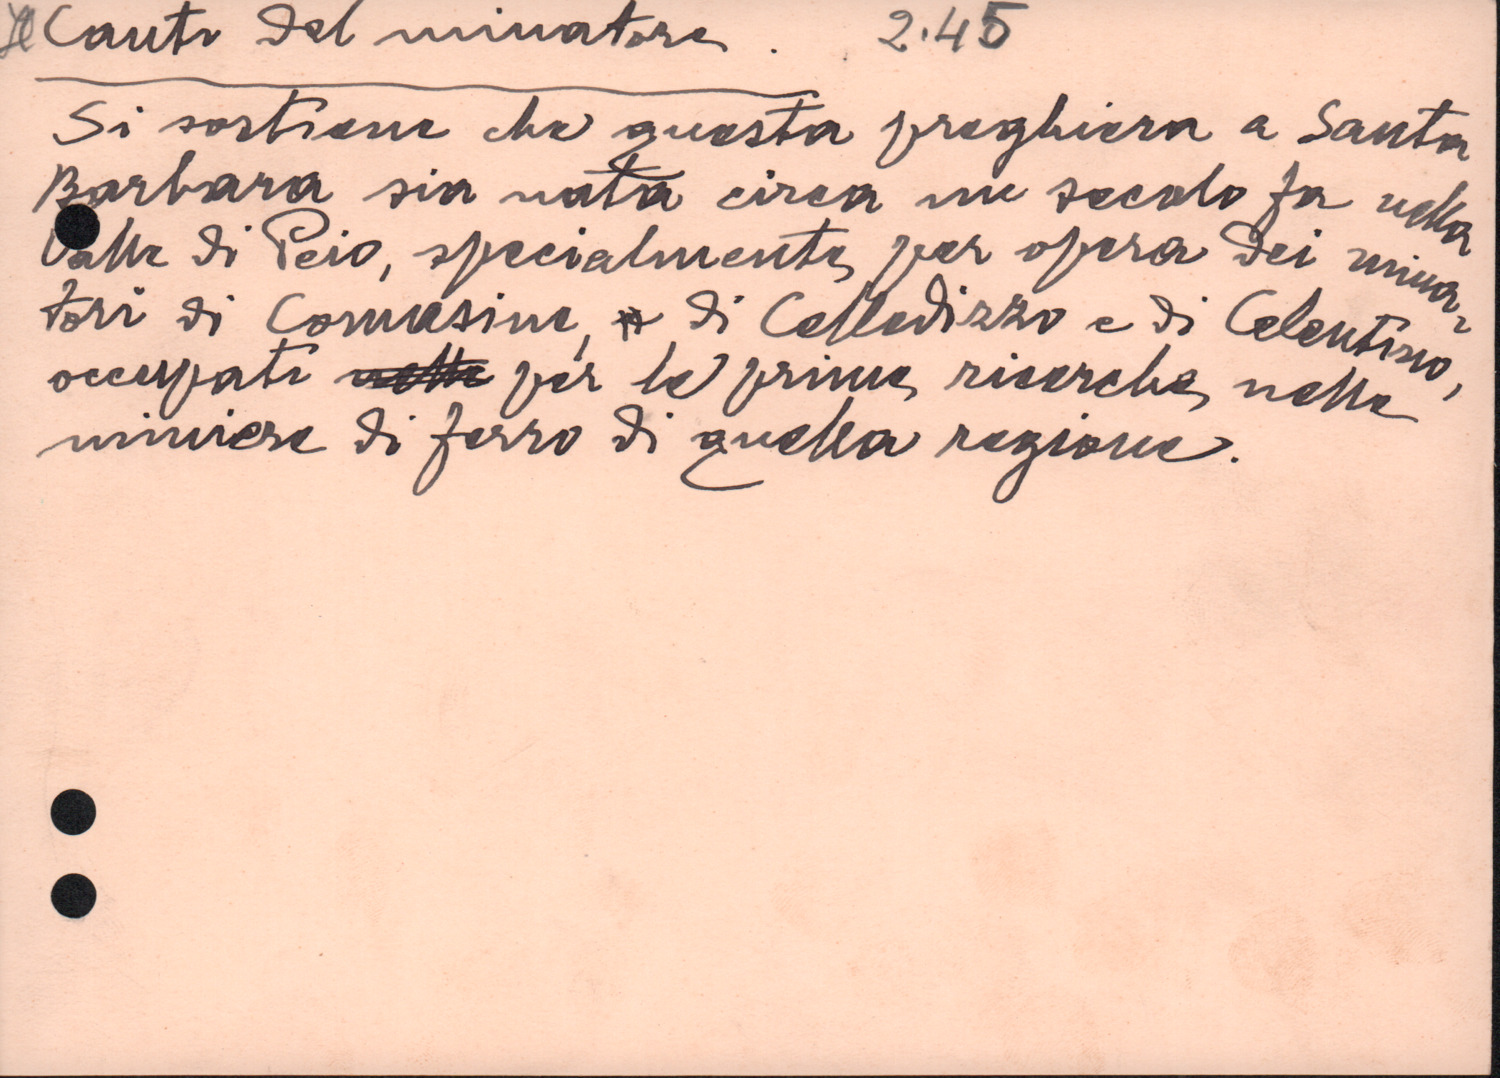 Canti del minatore. 2.45
Si sostiene che questa preghiera a Santa
Barbara sia nata circa un secolo fa nella
Valle di Peio, specialmente per opera dei mina-
tori di Comasine, di Celledizzo e di Celentino,
occupati per le prime ricerche nelle
miniere di ferro di quella regione.